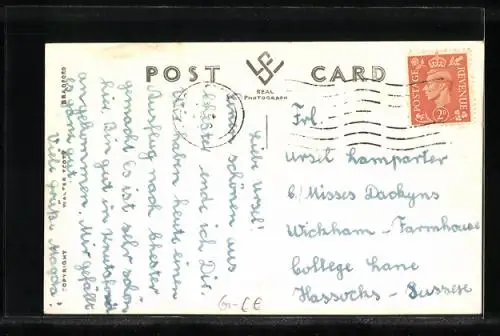 POST CARD
REAL
PHOTOGRAPH
POSTAGE REVENUE
2D
Liebe Ursel!
Einen schönen aus
sende ich Dir.
Wir haben heute einen
Ausflug nach Chester
gemacht. Es ist sehr schön
hier. Bin gut in Knutsford
angekommen. Mir gefällt
es ganz gut.
Viele Grüße
Frl.
Ursel Lamparter
c/ Misses Dackyns
Wickham - Farmhouse
College Lane
Hassocks - Sussex
COPYRIGHT
WALTER SCOTT
BRADFORD
G-CE